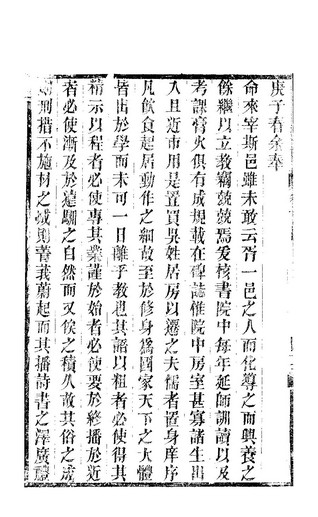 庚子春余奉
命來宰斯邑雖未敢云胥一邑之人而化導之而興養之
餘繼以立教竊兢兢焉爰核書院中每年延師訓讀以及
考課膏火俱有成規載在碑誌惟院中房室甚寡諸生出
入且近市用是置買吳姓居房以遷之夫儒者置身庠序
凡飲食起居動作之細故至於修身爲國家天下之大體
皆由於學而未可一日離乎教也其詔以粗者必使得其
精示以程者必使專其業謹於始者必使要於終播於近
者必使漸及於遠馴之自然而又俟之積久故其俗之成
則刑措不施材之成則菁莪蔚起而其播詩書之澤廣禮